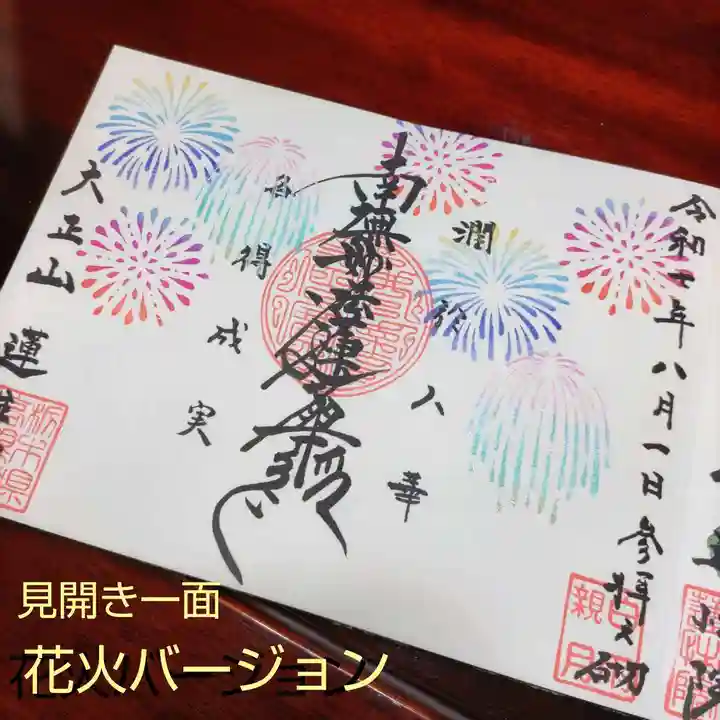 令和七年八月一日参拝之砌
潤於人華
南無妙法蓮華経
各得成実
大正山蓮
栃木県
見開き一面
花火バージョン